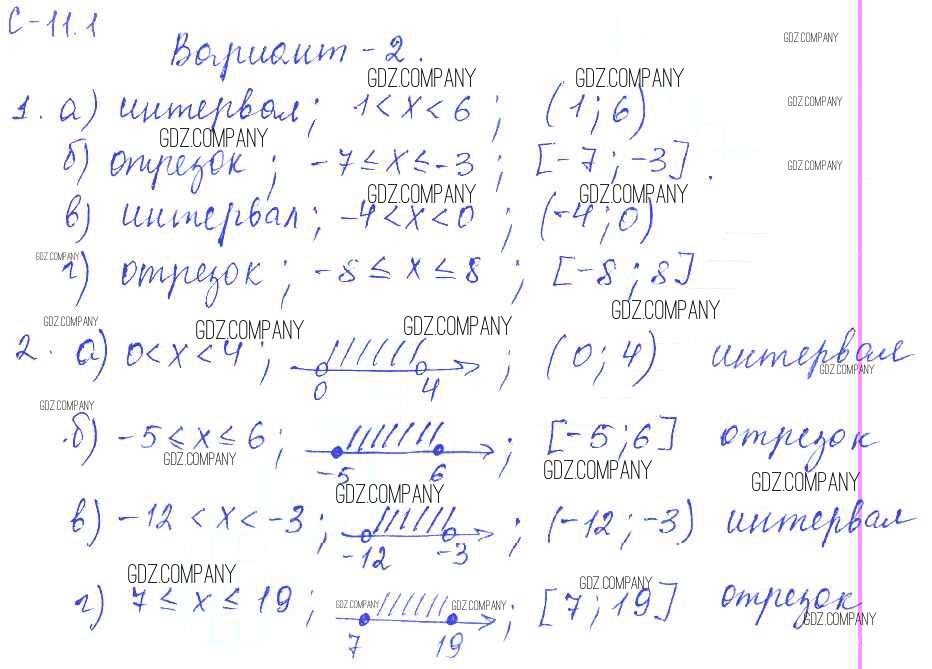 С-11.1
Вариант-2.
GDZ.COMPANY
GDZ.COMPANY GDZ.COMPANY
1. а) интервал; 1<x<6; (1;6)
GDZ.COMPANY
GDZ.COMPANY
б) отрезок; -7≤x≤-3; [-7;-3].
GDZ.COMPANY
GDZ.COMPANY GDZ.COMPANY
в) интервал; -4<x<0; (-4;0)
GDZ.COMPANY
г) отрезок; -8≤x≤8; [-8;8]
GDZ.COMPANY
GDZ.COMPANY GDZ.COMPANY GDZ.COMPANY
2. а) 0<x<4; 0 4; (0;4) интервал
GDZ.COMPANY
GDZ.COMPANY
б) -5≤x≤6; -5 6; [-5;6] отрезок
GDZ.COMPANY GDZ.COMPANY GDZ.COMPANY
GDZ.COMPANY
в) -12<x<-3; -12 -3; (-12;-3) интервал
GDZ.COMPANY GDZ.COMPANY
г) 7≤x≤19; 7 19; [7;19] отрезок
GDZ.COMPANY GDZ.COMPANY GDZ.COMPANY